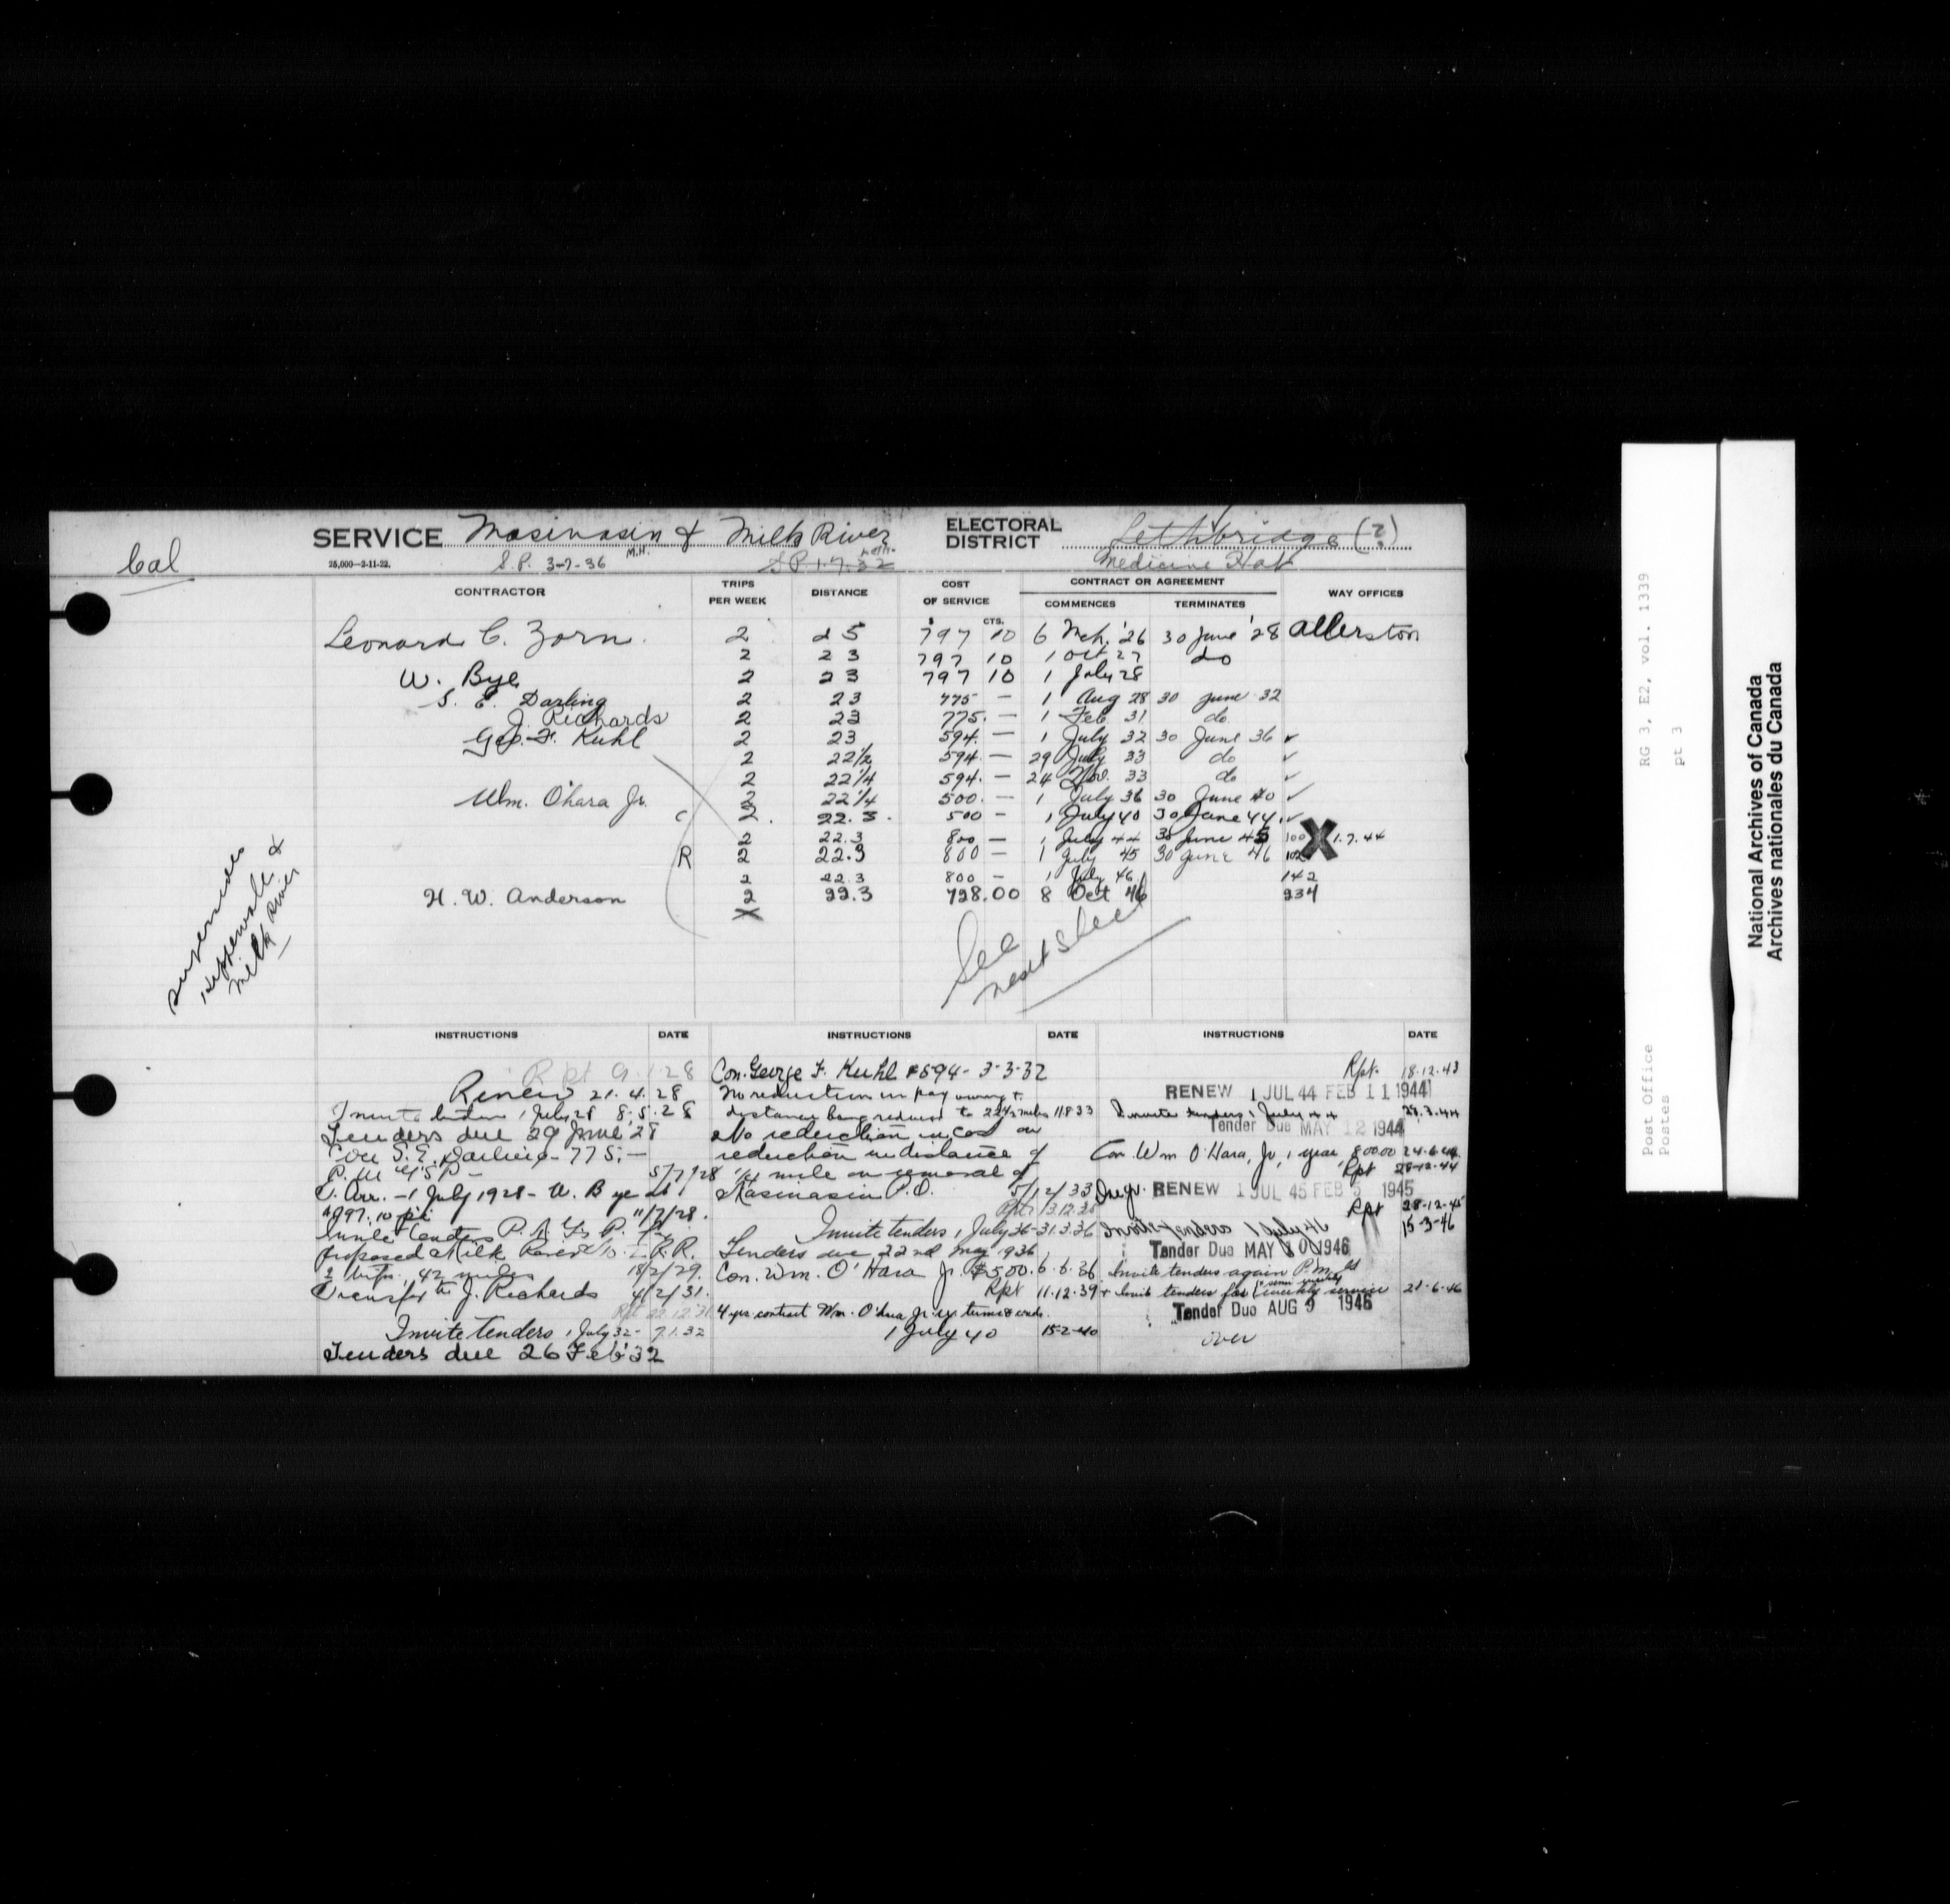 Cal
SERVICE Masinasin & Milk River
ELECTORAL DISTRICT Lethbridge (?)
25,000-2-11-22.
S.P. 3-7-36 M.H.
S.P. 1-7-32
Medicine Hat
CONTRACTOR TRIPS PER WEEK DISTANCE COST OF SERVICE CONTRACT OR AGREEMENT COMMENCES TERMINATES WAY OFFICES
$ CTS.
Leonard C. Zorn. 2 25 797 10 6 Mch. '26 30 June '28 Allerston
2 23 797 10 1 Oct 27 do
W. Bye 2 23 797 10 1 July 28
S. E. Darling 2 23 775 — 1 Aug 28 30 June 32
J. Richards 2 23 775. — 1 Feb 31 do
Geo. F. Kuhl 2 23 594. — 1 July 32 30 June 36 ✓
2 22 1/2 594. — 29 July 33 do ✓
2 22 1/4 594. — 24 Nov. 33 do ✓
Wm. O'hara Jr. 2 22 1/4 500. — 1 July 36 30 June 40 ✓
C 2. 22.3. 500 — 1 July 40 30 June 44 ✓
2 22.3 800 — 1 July 44 30 June 45 100 X 1.7.44
R 2 22.3 800 — 1 July 45 30 June 46 102
2 22.3 800 — 1 July 46 142
H. W. Anderson 2 22.3 728.00 8 Oct 46 234
X
See
next sheet
supersedes
&
Milk River
INSTRUCTIONS DATE INSTRUCTIONS DATE INSTRUCTIONS DATE
Rpt 9.1.28
Renew 21.4.28
Invite tenders 1 July 28 8.5.28
Tenders due 29 June '28
Con S. E. Darling - 775. —
5/7/28
T. Arr. - 1 July 1928 - W. Bye at
$797.10 11/7/28.
Invite tenders
proposed Milk River R.R.
2 42 miles 18/2/29.
Transfer to J. Richards 4/2/31.
Rpt 22.12.31
Invite tenders 1 July 32 - 7.1.32
Tenders due 26 Feb '32
Con. George F. Kuhl $594 - 3-3-32
No reduction in pay owing to
distance being reduced to 22 1/2 miles 11 8 33
No reduction in cost on
reduction in distance of
1/4 mile on removal of
Masinasin P.O. 5/12/33
Rpt 3.12.35
Invite tenders 1 July 36 - 31.3.36
Tenders due 22nd May 1936
Con. Wm. O'Hara Jr. $500. 6.6.36
Rpt 11.12.39
4 yrs contract Wm. O'hara Jr.
1 July 40 15-2-40
Rpt. 18.12.43
RENEW 1 JUL 44 FEB 11 1944
Invite tenders 1 July 44 23.3.44
Tender Due MAY 12 1944
Con Wm O'Hara, Jr, 1 year, 800.00 24.6.44
Rpt 28-12-44
RENEW 1 JUL 45 FEB 5 1945
Rpt 28-12-45
Invite tenders 1 July 46 15-3-46
Tender Due MAY 10 1946
Invite tenders again
+ Invite tenders for semi weekly service 21-6-46
Tender Due AUG 9 1946
over
RG 3, E2, vol. 1339
pt 3
Post Office
Postes
National Archives of Canada
Archives nationales du Canada